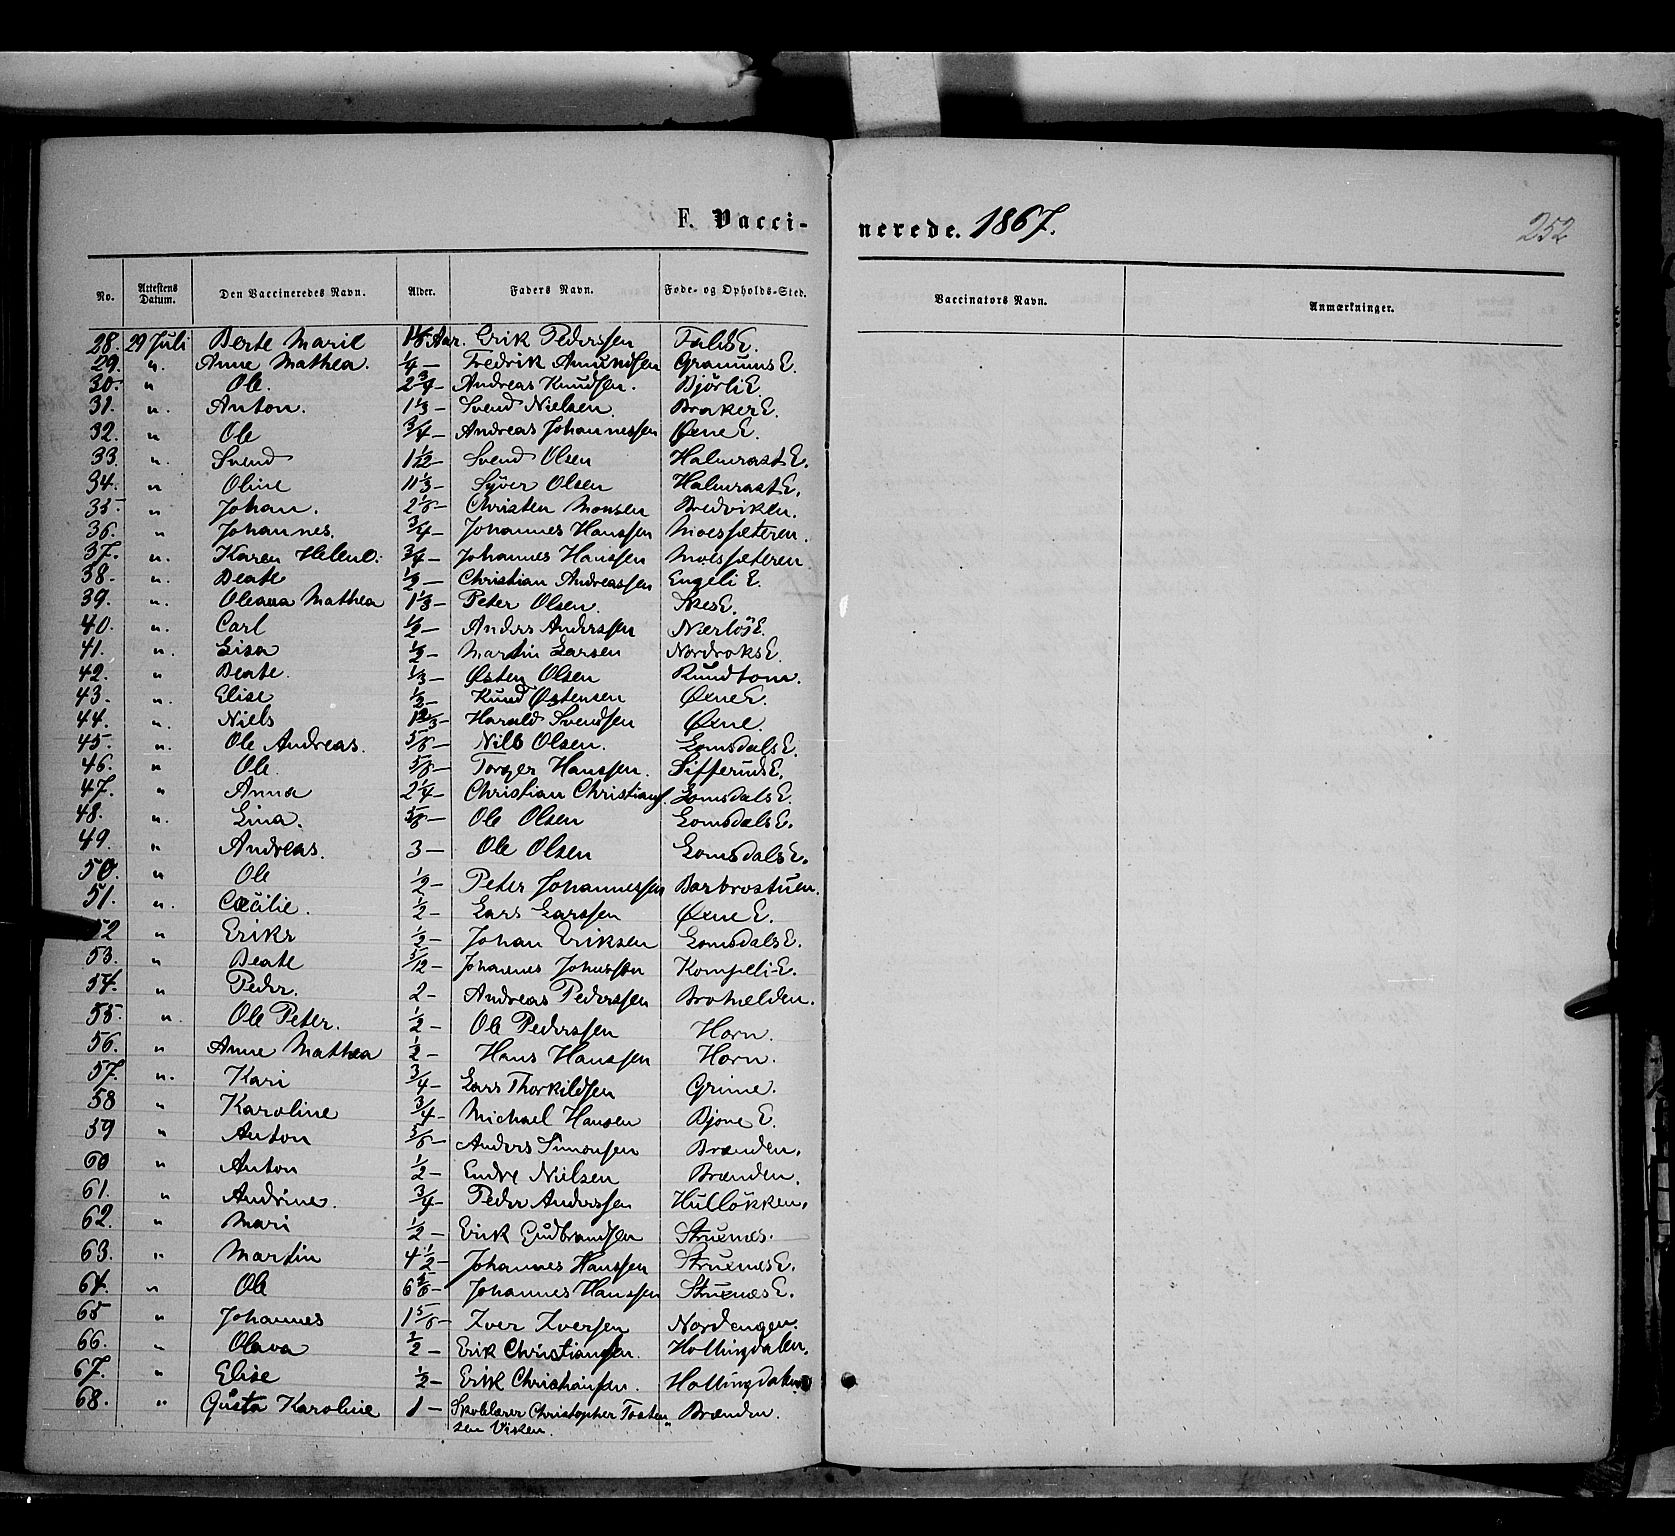 F. Vacci-
nerede. 1867.
252
No. Attestens Datum. Den Vaccineredes Navn. Alder. Faders Navn. Føde- og Opholds-Sted. Vaccinators Navn. Anmærkninger.
28. 29 Juli Berte Marie Aar. Erik Pederssen FaldsE.
29. " Anne Mathea. 1/4 - Fredrik Amundsen GranumsE.
30. " Ole. 2 3/4 - Andreas Knudsen. BjörliE.
31. " Anton. 1 1/3 - Svend Nielsen. BrakerE.
32. " Ole 3/4 - Andreas Johannessen ØxneE.
33. " Svend 1 1/12 - Svend Olsen HalmrastE.
34. " Oline 11 1/3 - Syver Olsen HalmrastE.
35. " Johan. 2 1/6 - Christen Monsen Bredviken.
36. " Johannes. 3/4 - Johannes Hanssen Moessæteren.
37. " Karen Helene. 3/4 - Johannes Hanssen Moessæteren
38. " Beate 1/2 - Christian Andreassen Engeli E.
39. " Oleana Mathea 1 1/3 - Peter Olsen. SkesE.
40. " Carl 1/2 - Anders Anderssen
41. " Lisa 1/2 - Martin Larsen NordroksE.
42. " Beate. 1/3 - Østen Olsen Rundtom.
43. " Elise 1/2 - Knud Østensen ØxneE.
44. " Niels Harald Svendsen Øxne.
45. " Ole Andreas. 5/6 - Nils Olsen. LomsdalsE.
46. " Ole. 5/6 - Torger Hanssen. SifferudsE.
47. " Anna 2 1/4 - Christian Christians. LomsdalsE.
48. " Lina. 5/6 - Ole Olsen LomsdalsE.
49. " Andreas. 3 - Ole Olsen LomsdalsE.
50. " Ole 1/2 - Peter Johannessen Barbrostuen.
51. " Cæcilie. 1/2 - Lars Larssen ØxneE.
52 " Erik 1/2 - Johan Eriksen LomsdalsE.
53. " Beate 5/12 - Johannes Johnssen Kompeli-E.
54. " Peder. 2 - Andreas Pederssen Brovelden.
55. " Ole Peter. 1/2 - Ole Pederssen Horn.
56. " Anne Mathea 1/2 - Hans Hanssen Horn.
57. " Kari 3/4 - Lars Thorkildsen Grime.
58 " Karoline 3/4 - Michael Hansen Bjone E.
59 " Anton 5/6 - Anders Simonsen Brænden.
60 " Anton 1/2 - Endre Nielsen Brænden.
61. " Andrine. 3/4 - Peder Anderssen Hullökken.
62. " Mari 1/2 - Erik Gudbrandsen Struxnæs.
63. " Martin 4 1/2 - Johannes Hanssen StruxnæsE.
64. " Ole 6 5/6 - Johannes Hanssen StruxnæsE.
65 " Johannes 1 5/6 - Iver Iversen Nordengen.
66. " Olava 2 - Erik Christiansen. Hollingdalen.
67. " Elise 1/2 - Erik Christiansen. Hollingdalen
68. " Gusta Karoline 1 - Skolelærer Christopher Tosten" Brænden.
sen Viken.